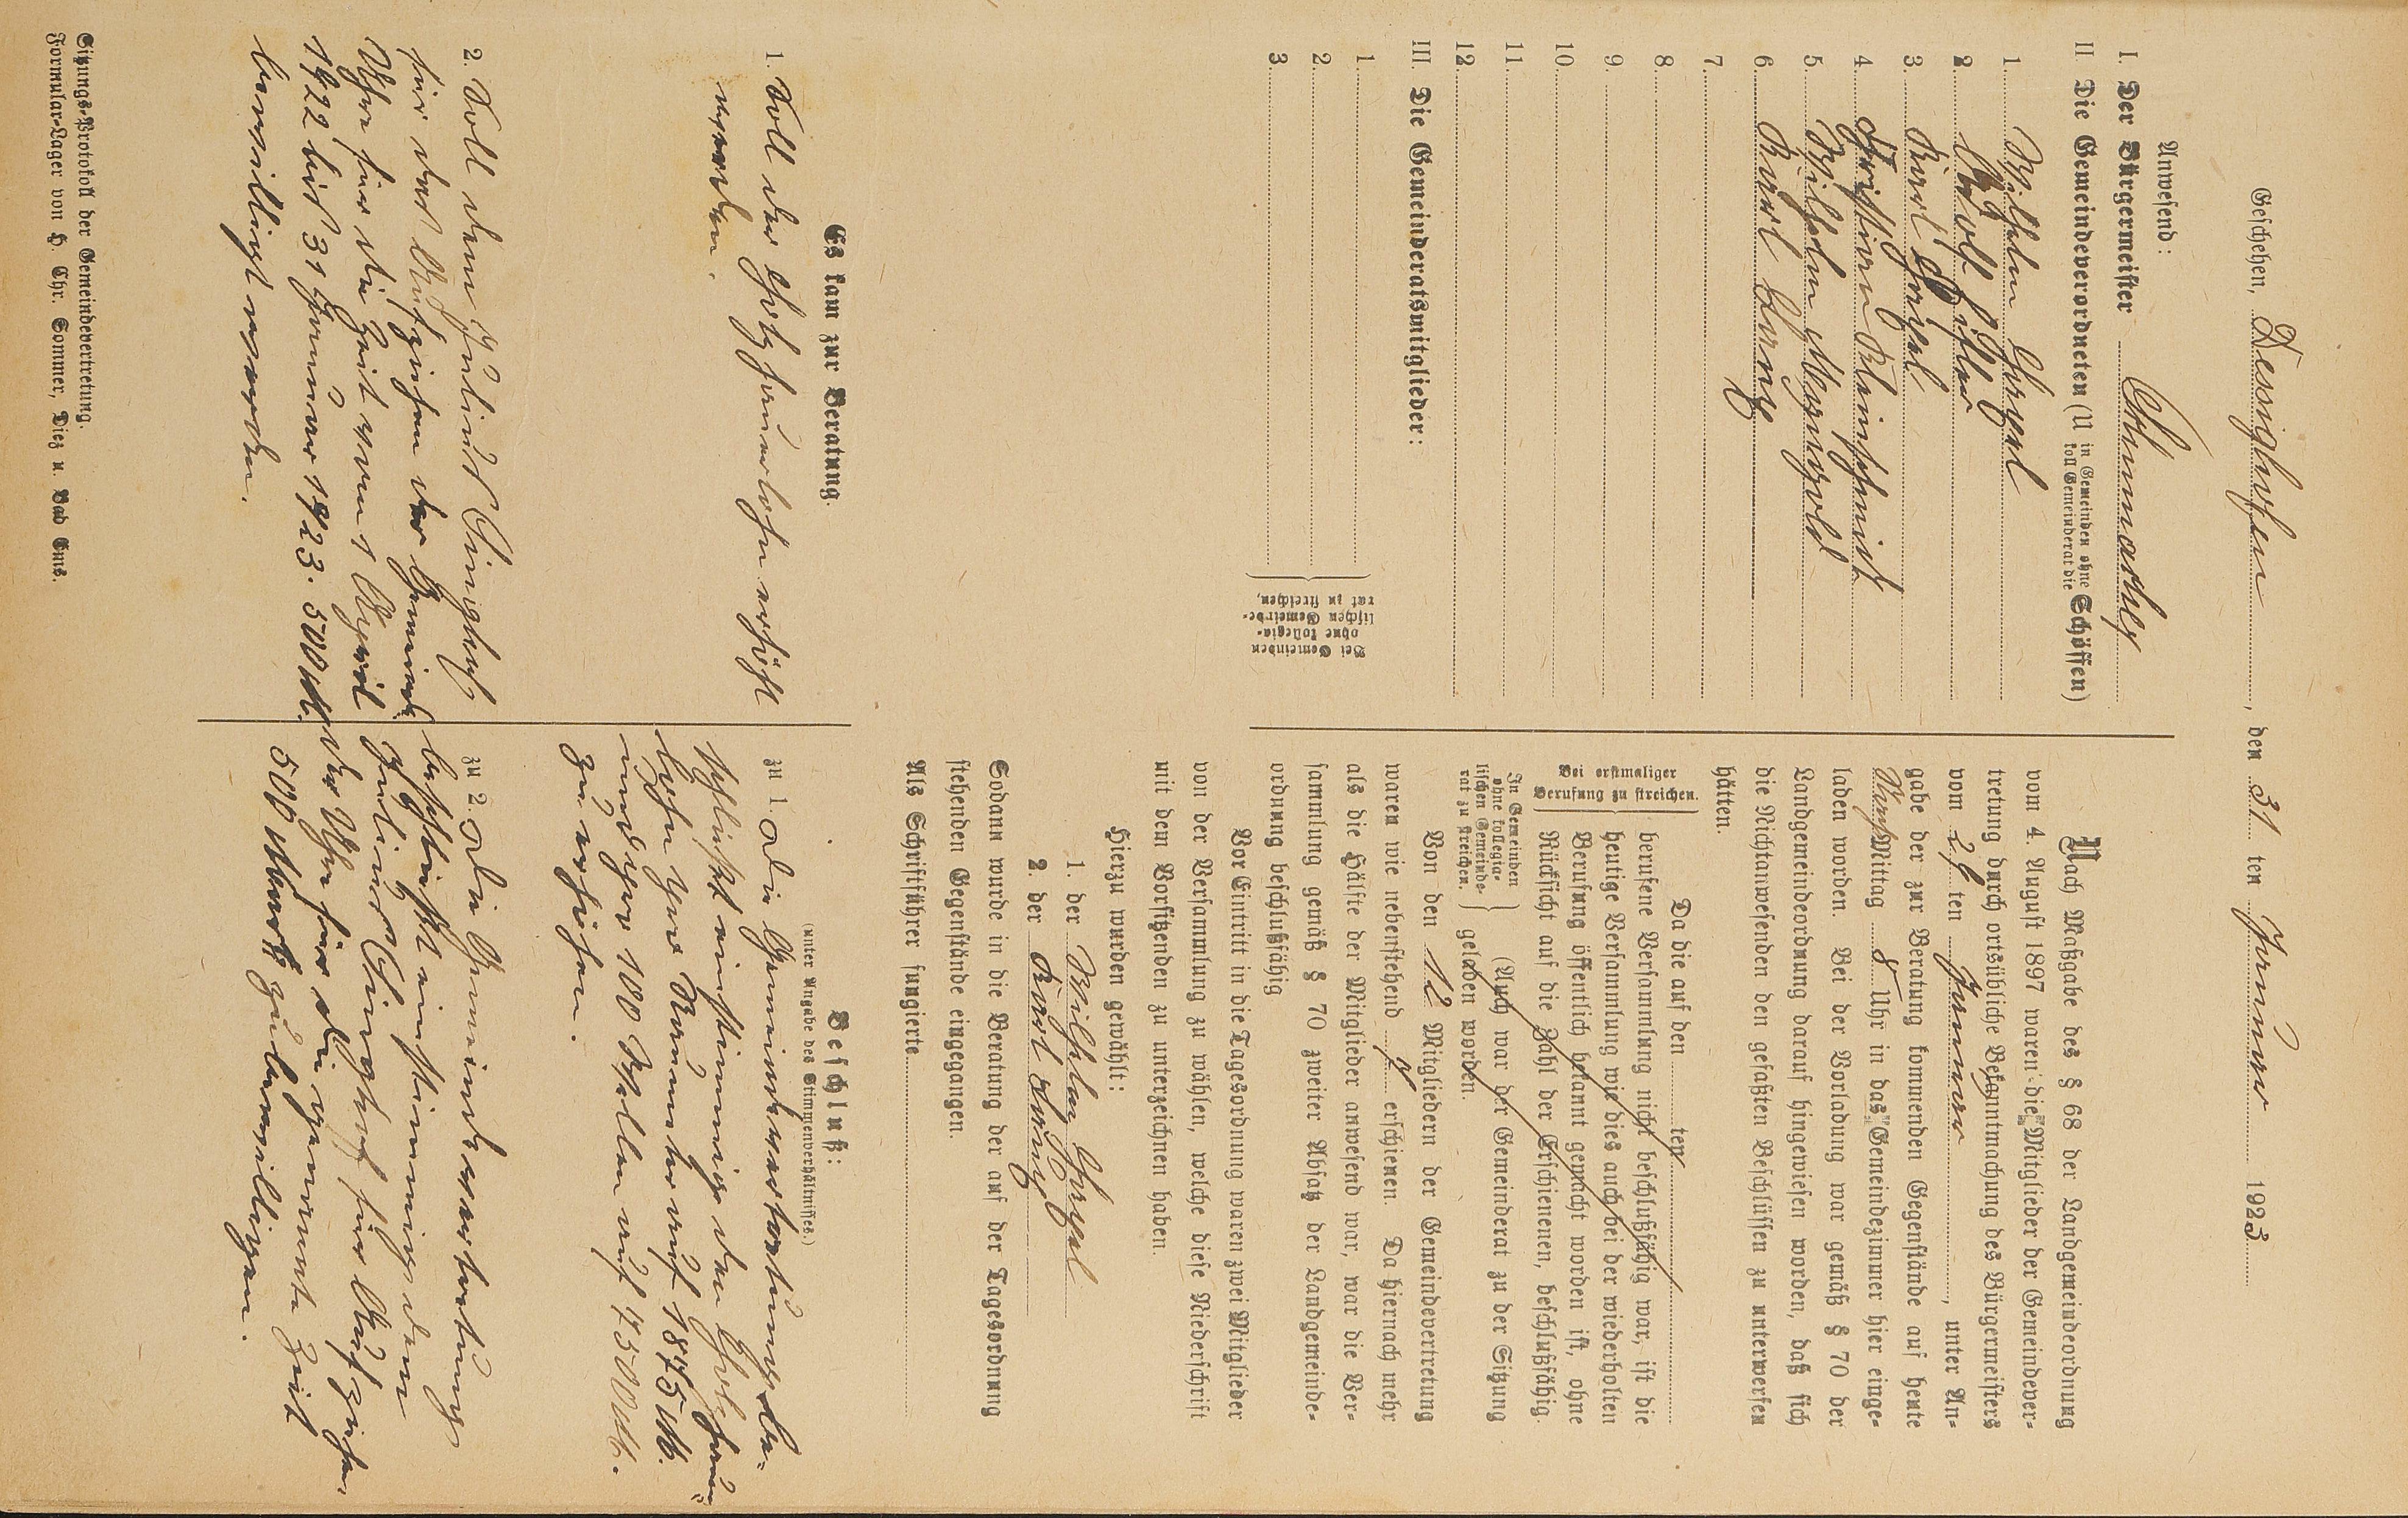 Geschehen, Dessighofen, den 31 ten Januar 1923
Anwesend:
I. Der Bürgermeister
II Die Gemeindeverordneten (U in Gemeinden ohne koll Gemeinderat die Schöffen)
1. Wilhelm
2. Adolf
3. Karl
4. Christian Kleinschmidt
5. Wilhelm Mangold
6. Karl
7.
8.
9.
10.
11.
12.
III. Die Gemeinderatsmitglieder:
1.
2.
3.
Bei Gemeinden
ohne kollegia-
lischen Gemeinde-
rat zu streichen,
Nach Maßgabe des § 68 der Landgemeindeordnung
vom 4. August 1897 waren die Mitglieder der Gemeindever-
tretung durch ortsübliche Bekanntmachung des Bürgermeisters
vom 29 ten Januar, unter An-
gabe der zur Beratung kommenden Gegenstände auf heute
Nach Mittag 8 Uhr in das Gemeindezimmer hier einge-
laden worden. Bei der Vorladung war gemäß § 70 der
Landgemeindeordnung darauf hingewiesen worden, daß sich
die Nichtanwesenden den gefaßten Beschlüssen zu unterwerfen
hätten.
Bei erstmaliger
Berufung zu streichen.
Da die auf den ten
berufene Versammlung nicht beschlußfähig war, ist die
heutige Versammlung wie dies auch bei der wiederholten
Berufung öffentlich bekannt gemacht worden ist, ohne
Rücksicht auf die Zahl der Erschienenen, beschlußfähig.
In Gemeinden
ohne kollegia-
lischen Gemeinde-
rat zu streichen.
(Auch war der Gemeinderat zu der Sitzung
geladen worden.
Von den 12 Mitgliedern der Gemeindevertretung
waren wie nebenstehend erschienen. Da hiernach mehr
als die Hälfte der Mitglieder anwesend war, war die Ver-
sammlung gemäß § 70 zweiter Absatz der Landgemeinde-
ordnung beschlußfähig
Vor Eintritt in die Tagesordnung waren zwei Mitglieder
von der Versammlung zu wählen, welche diese Niederschrift
mit dem Vorsitzenden zu unterzeichnen haben.
Hierzu wurden gewählt:
1. der Wilhelm
2. der Karl
Sodann wurde in die Beratung der auf der Tagesordnung
stehenden Gegenstände eingegangen.
Als Schriftführer fungierte
Es kam zur Beratung.
1. Soll der Holzhauerlohn erhöht
werden.
2. Soll dem Julius
für das Aufziehen der Gemeinde
Uhr für die Zeit vom 1 April
1922 bis 31 Januar 1923. 500 M.
bewilligt werden.
Beschluß:
(unter Angabe des Stimmenverhältnisses.)
zu 1. Die Gemeindevertretung be-
schließt einstimmig den Holzhauer-
lohn pro Raummeter auf 1875 M.
und per 100 Wellen auf 7500 M.
zu erhöhen.
zu 2. Die Gemeindevertretung
beschließt einstimmig dem
Julius für Aufziehen
der Uhr für die genannte Zeit
500 Mark zu bewilligen.
Sitzungs-Protokoll der Gemeindevertretung.
Formular-Lager von H. Chr. Sommer, Diez u. Bad Ems.